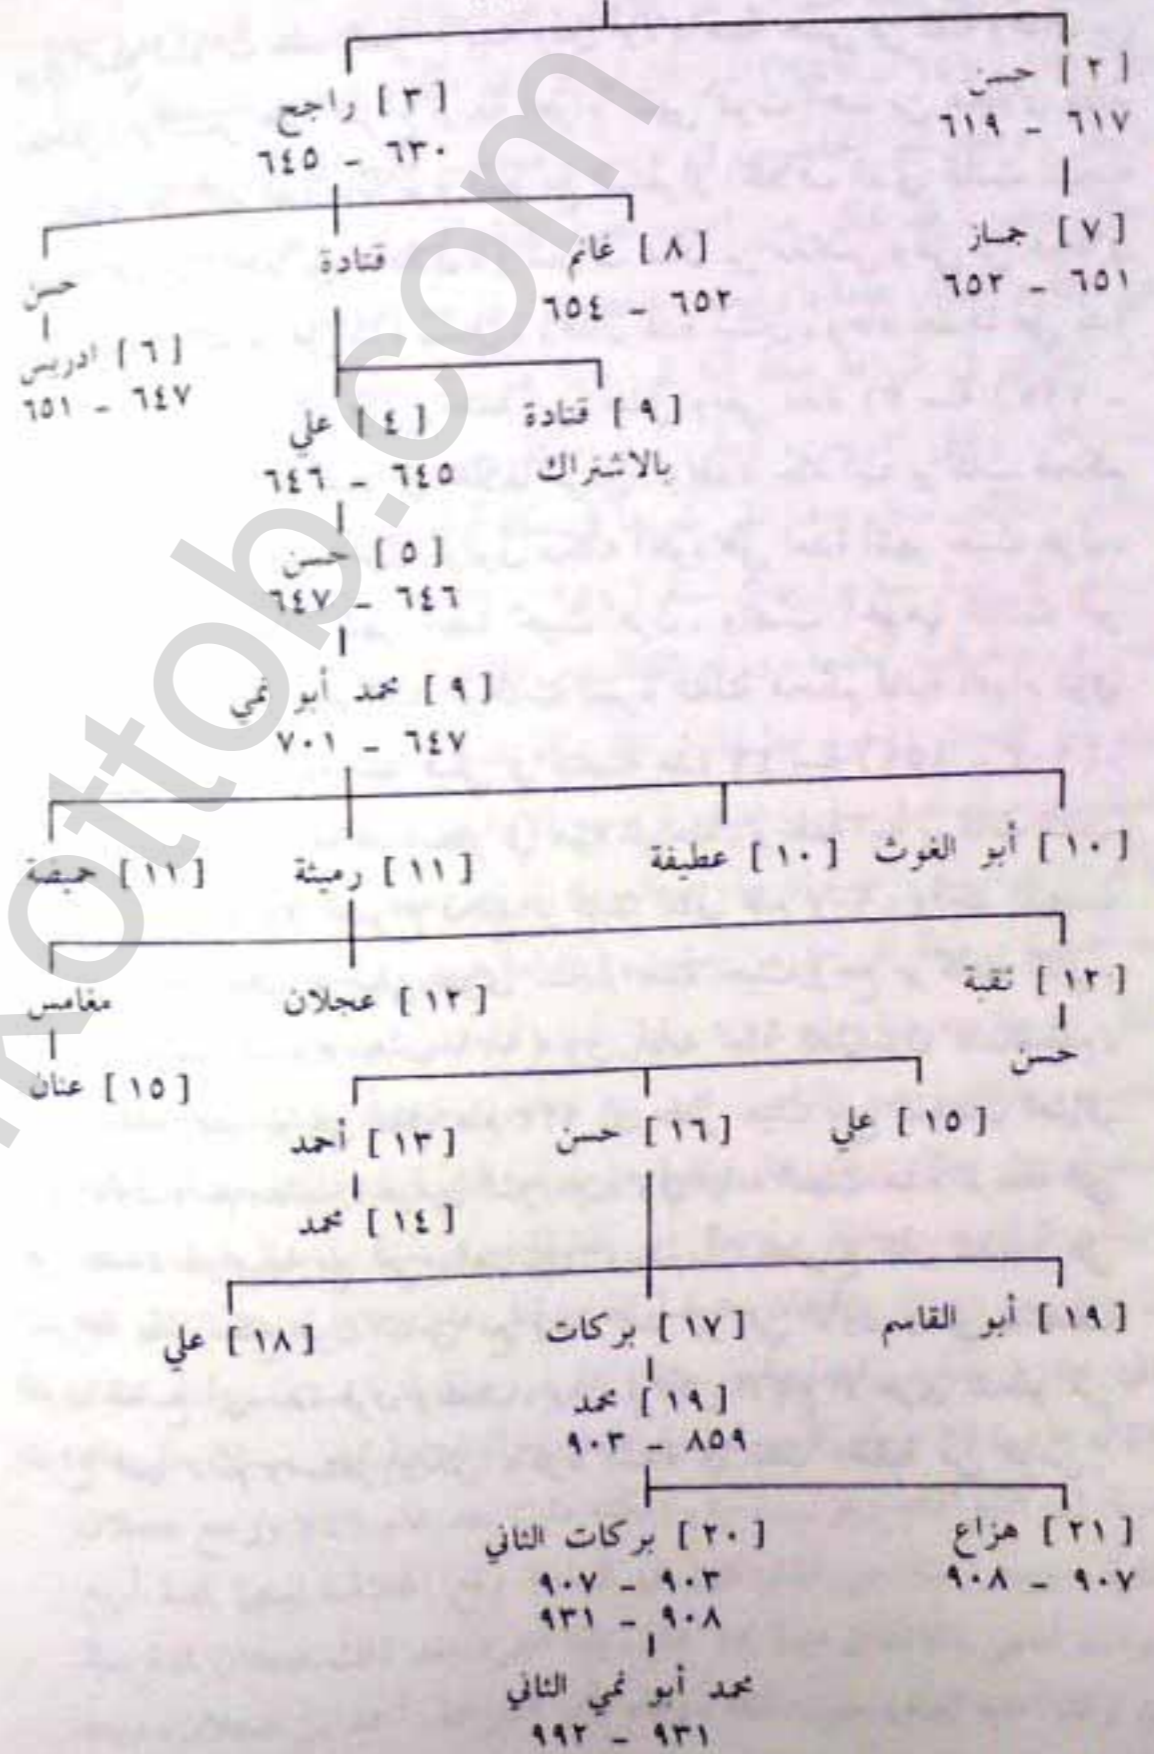 [ ٢ ] حسن
٦١٧ - ٦١٩
[ ٣ ] راجح
٦٣٠ - ٦٤٥
[ ٧ ] جماز
٦٥١ - ٦٥٢
[ ٨ ] غانم
٦٥٢ - ٦٥٤
قتادة
حسن
[ ٦ ] ادريس
٦٤٧ - ٦٥١
[ ٩ ] قتادة
بالاشتراك
[ ٤ ] علي
٦٤٥ - ٦٤٦
[ ٥ ] حسن
٦٤٦ - ٦٤٧
[ ٩ ] محمد أبو نمي
٦٤٧ - ٧٠١
[ ١٠ ] أبو الغوث
[ ١٠ ] عطيفة
[ ١١ ] رميثة
[ ١١ ] حميضة
[ ١٢ ] ثقبة
حسن
[ ١٢ ] عجلان
مغامس
[ ١٥ ] عنان
[ ١٥ ] علي
[ ١٦ ] حسن
[ ١٣ ] أحمد
[ ١٤ ] محمد
[ ١٩ ] أبو القاسم
[ ١٧ ] بركات
[ ١٨ ] علي
[ ١٩ ] محمد
٨٥٩ - ٩٠٣
[ ٢١ ] هزاع
٩٠٧ - ٩٠٨
[ ٢٠ ] بركات الثاني
٩٠٣ - ٩٠٧
٩٠٨ - ٩٣١
محمد أبو نمي الثاني
٩٣١ - ٩٩٢
kottob.com